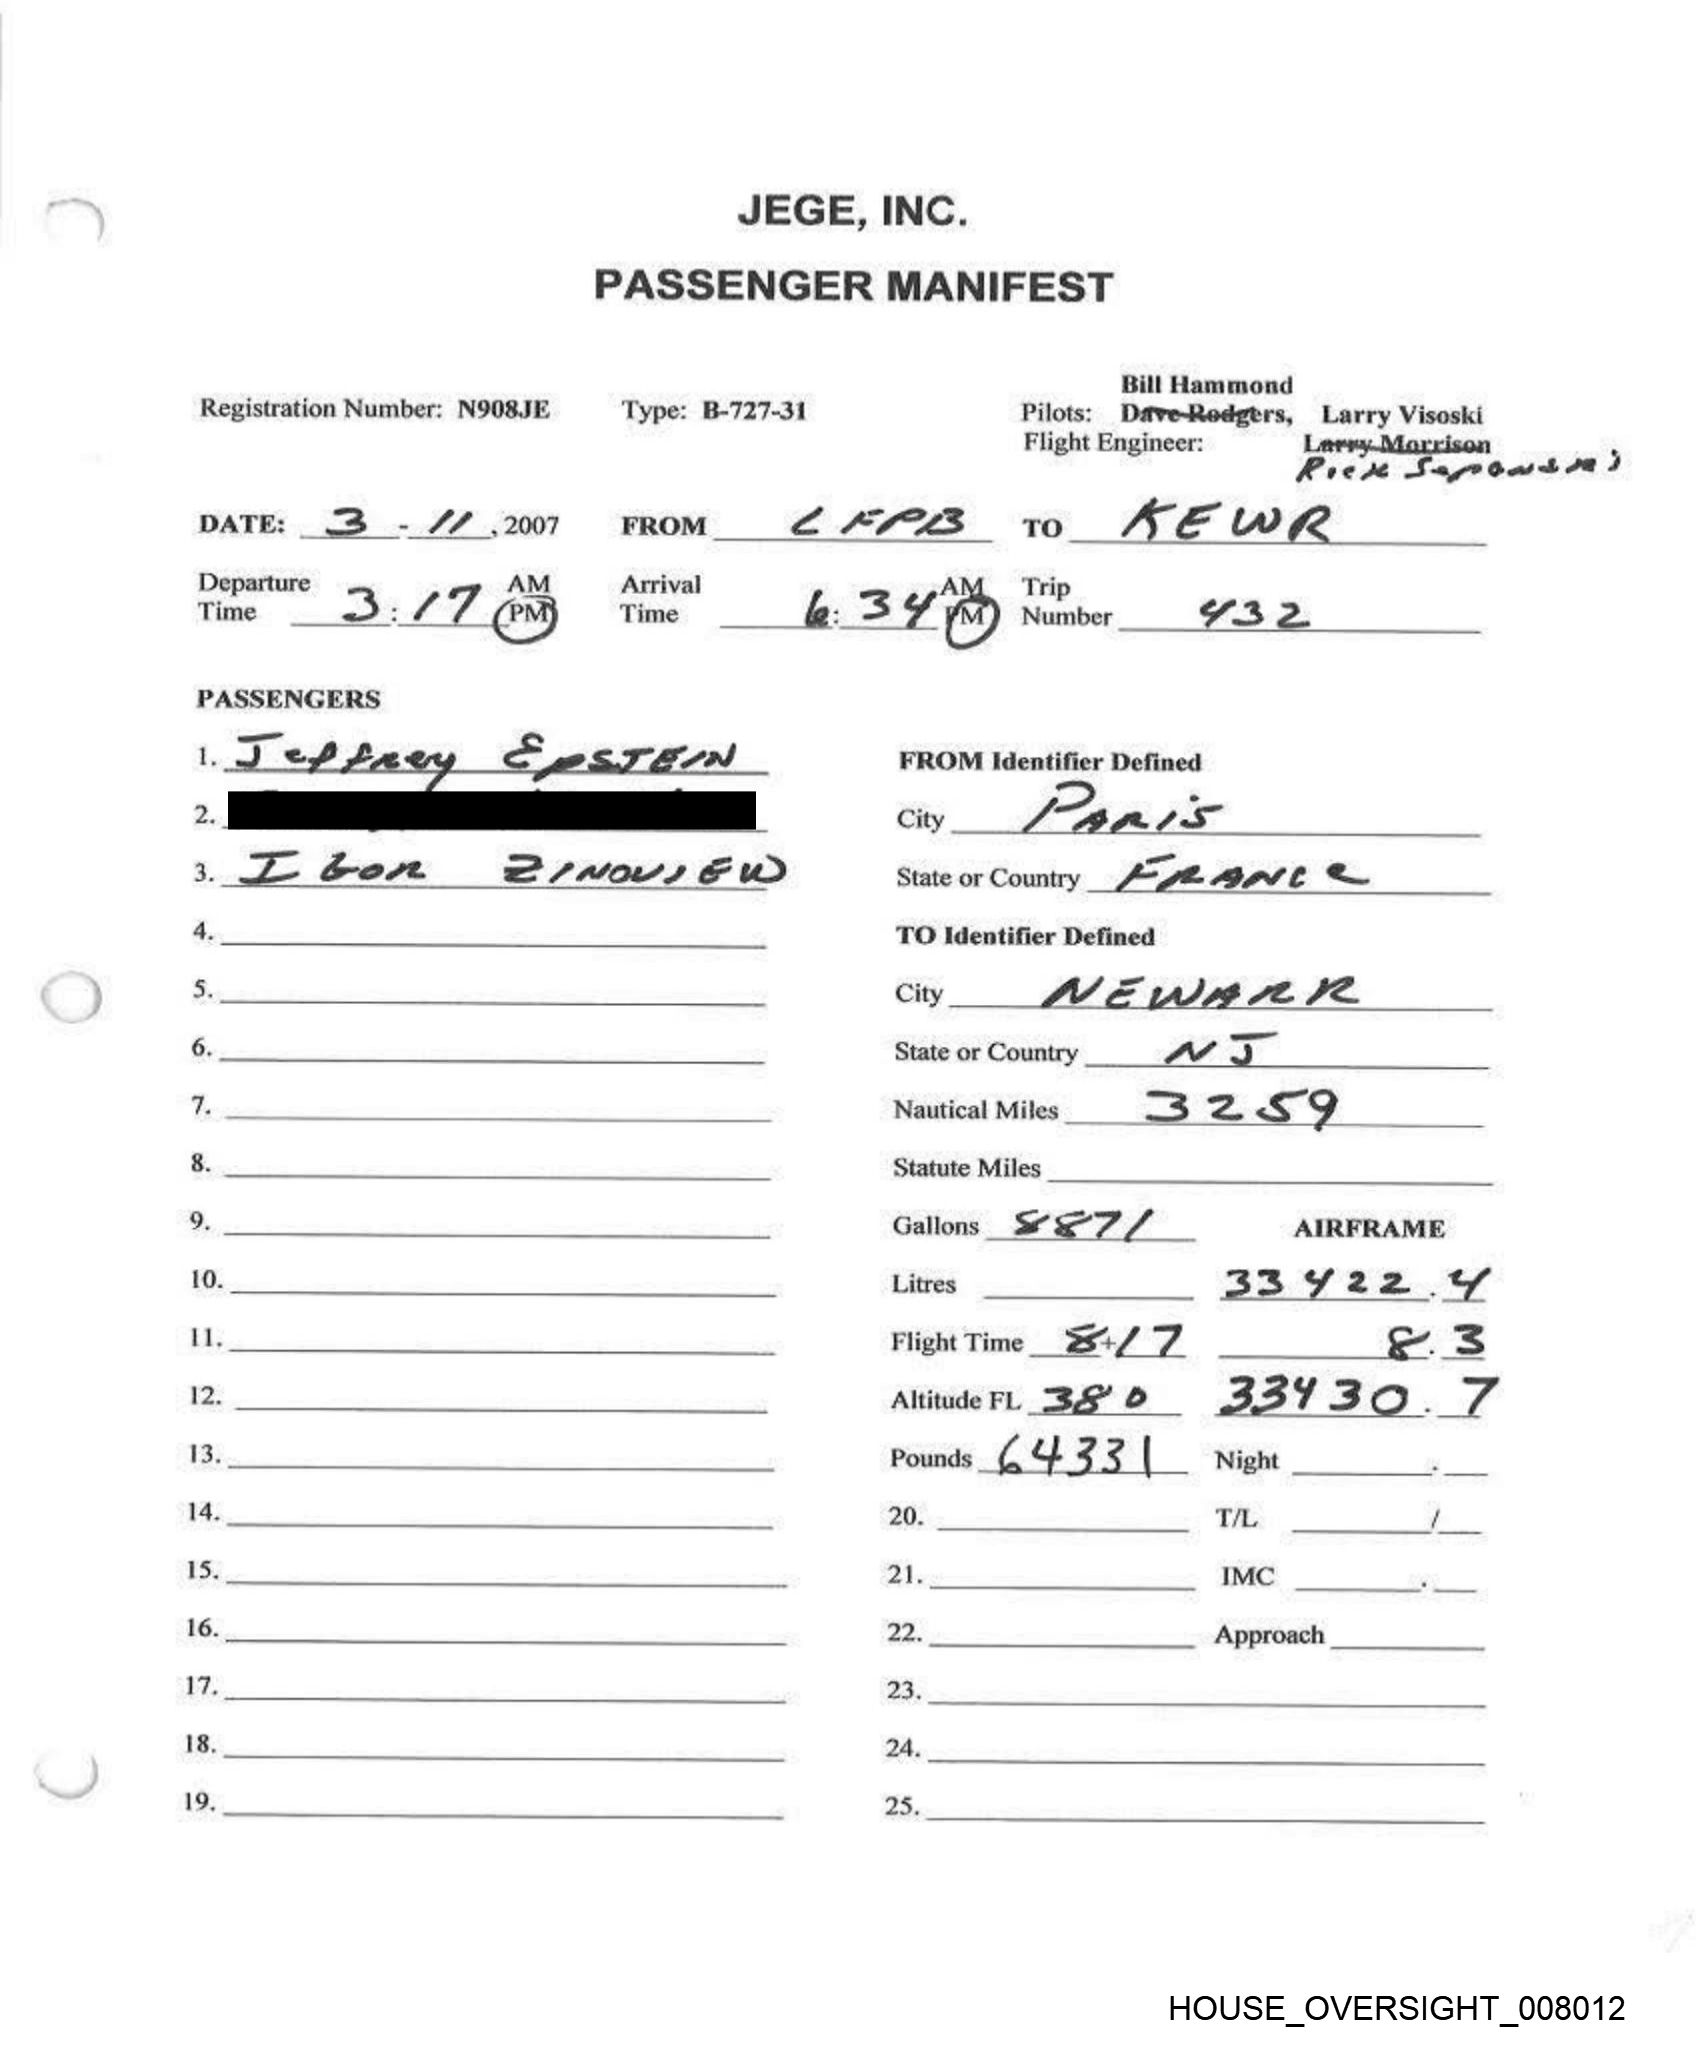 JEGE, INC.
PASSENGER MANIFEST
Bill Hammond
Registration Number: N908JE Type: B-727-31 Pilots: Dave Rodgers, Larry Visoski
Flight Engineer: Larry Morrison
Rick
DATE: 3 - 11, 2007 FROM LFPB TO KEWR
Departure Time 3:17 AM PM Arrival Time 6:34 AM PM Trip Number 432
PASSENGERS
1. Jeffrey EPSTEIN
2.
3. IGOR ZINOVIEW
4.
5.
6.
7.
8.
9.
10.
11.
12.
13.
14.
15.
16.
17.
18.
19.
FROM Identifier Defined
City PARIS
State or Country FRANCE
TO Identifier Defined
City NEWARK
State or Country NJ
Nautical Miles 3259
Statute Miles
Gallons 8871 AIRFRAME
Litres 33422.4
Flight Time 8+17 8.3
Altitude FL 380 33430.7
Pounds 64331 Night .
20. T/L /
21. IMC .
22. Approach
23.
24.
25.
HOUSE_OVERSIGHT_008012